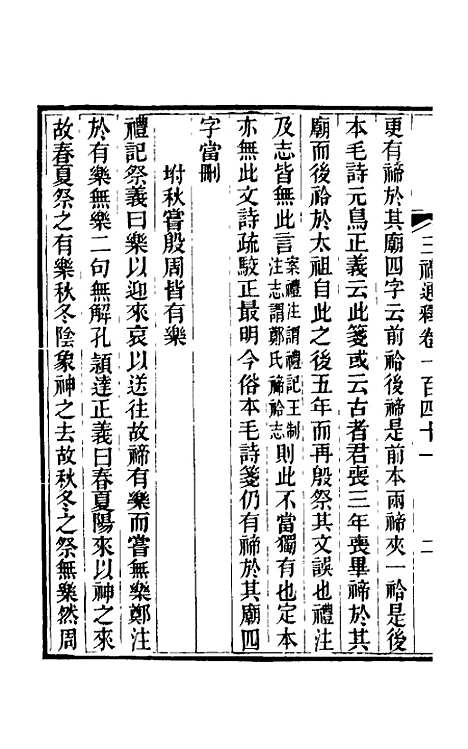 三禮通釋卷一百四十一
二
更有禘於其廟四字云前祫後禘是前本兩禘夾一祫是後
本毛詩元鳥正義云此箋或云古者君喪三年喪畢禘於其
廟而後祫於太祖自此之後五年而再殷祭其文誤也禮注
及志皆無此言案禮注謂禮記王制注志謂鄭氏禘祫志則此不當獨有也定本
亦無此文詩疏駮正最明今俗本毛詩箋仍有禘於其廟四
字當刪
坿秋嘗殷周皆有樂
禮記祭義曰樂以迎來哀以送往故禘有樂而嘗無樂鄭注
於有樂無樂二句無解孔頴達正義曰春夏陽來以神之來
故春夏祭之有樂秋冬陰象神之去故秋冬之祭無樂然周